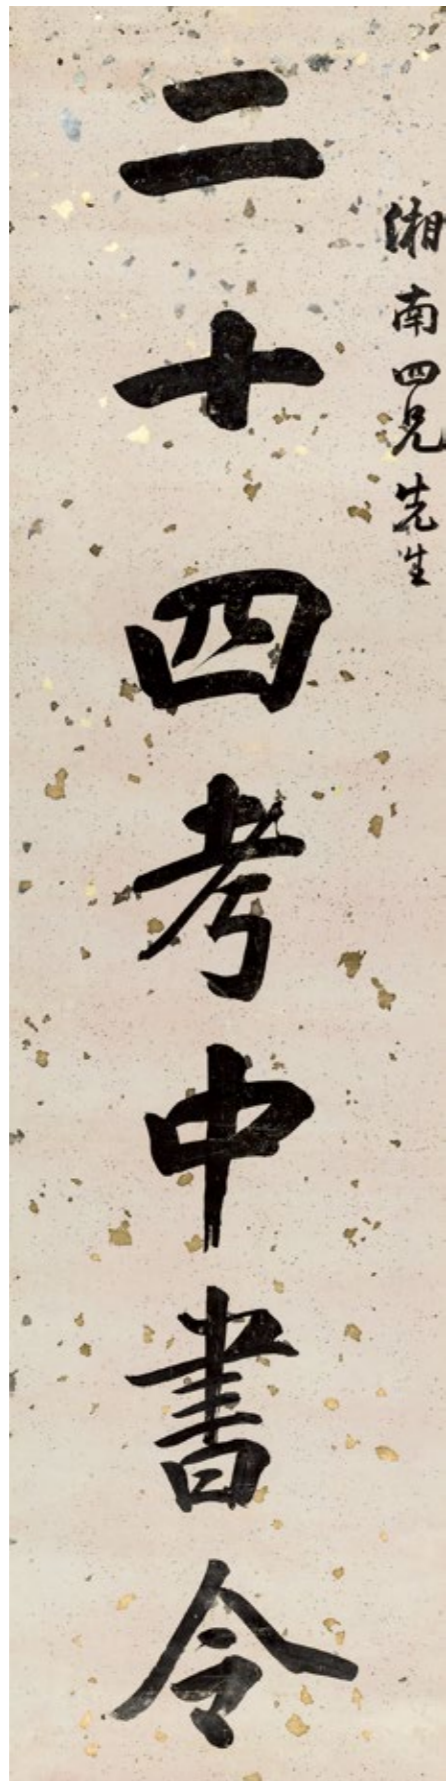 緗南四兄先生
二十四考中書令